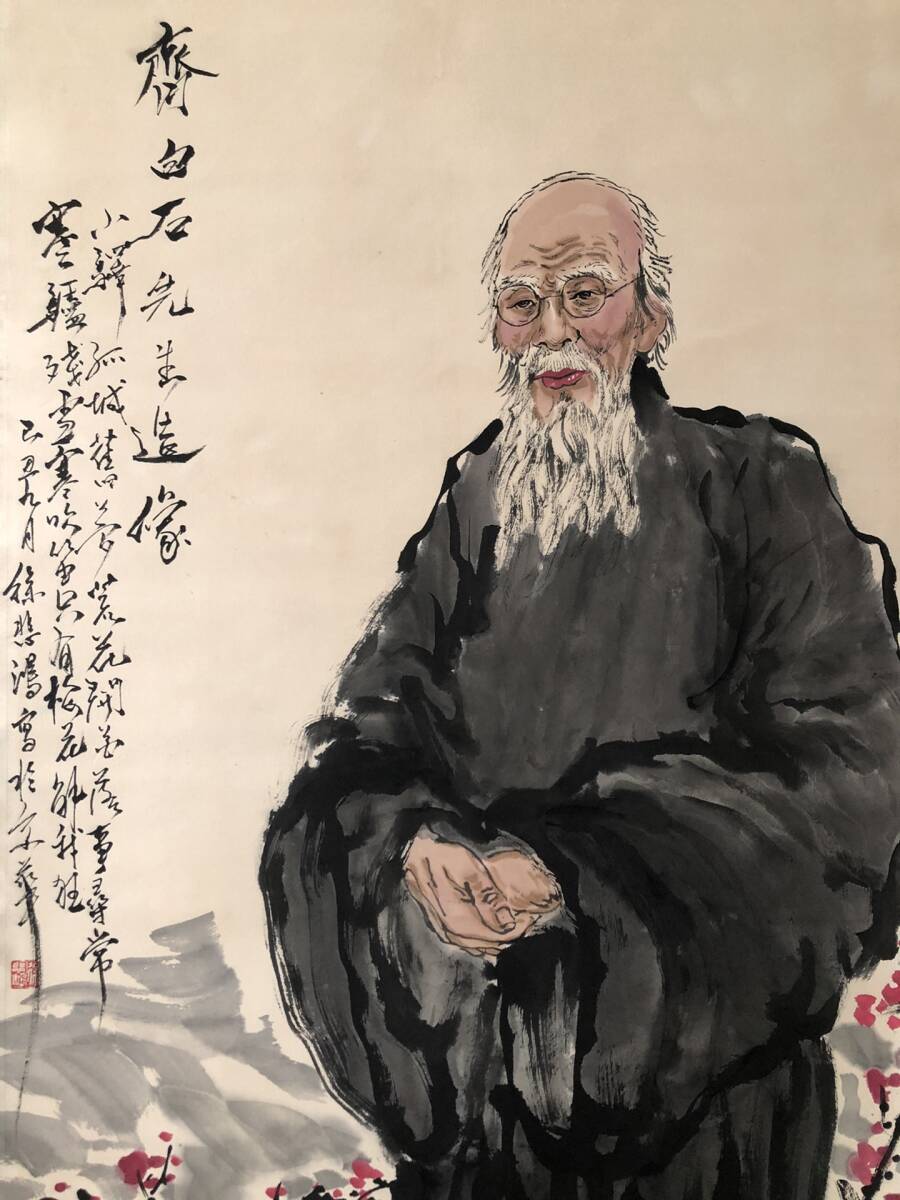 齊白石先生造像
小驛孤城舊夢荒花開花落事尋常
蹇驢殘雪寒吹笛只有梅花解我狂
己丑九月徐悲鴻寫於京華